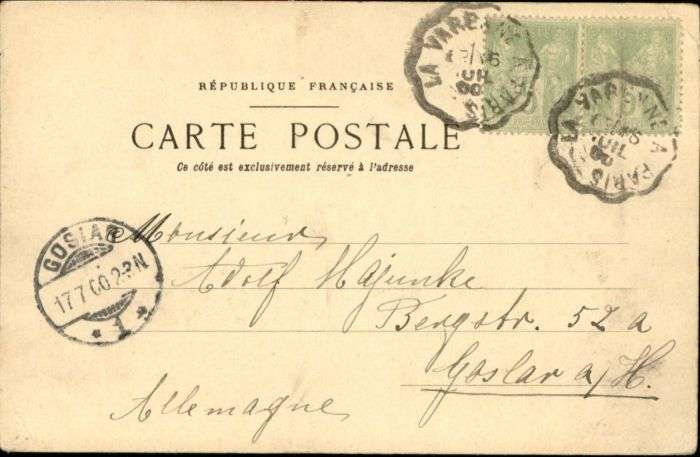 LA VARENNE A PARIS
16
JUIL
00
LA VARENNE A PARIS
16
JUIL
00
RÉPUBLIQUE FRANÇAISE
CARTE POSTALE
Ce côté est exclusivement réservé à l'adresse
GOSLAR
17.7.00.2-3N
* 1 *
Monsieur
Adolf Hajunke
Bergstr. 52a
Goslar a/H.
Allemagne